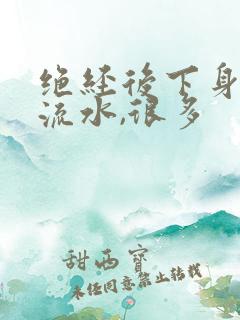 绝经后下身
流水,很多
甜西宝
未经同意禁止转载